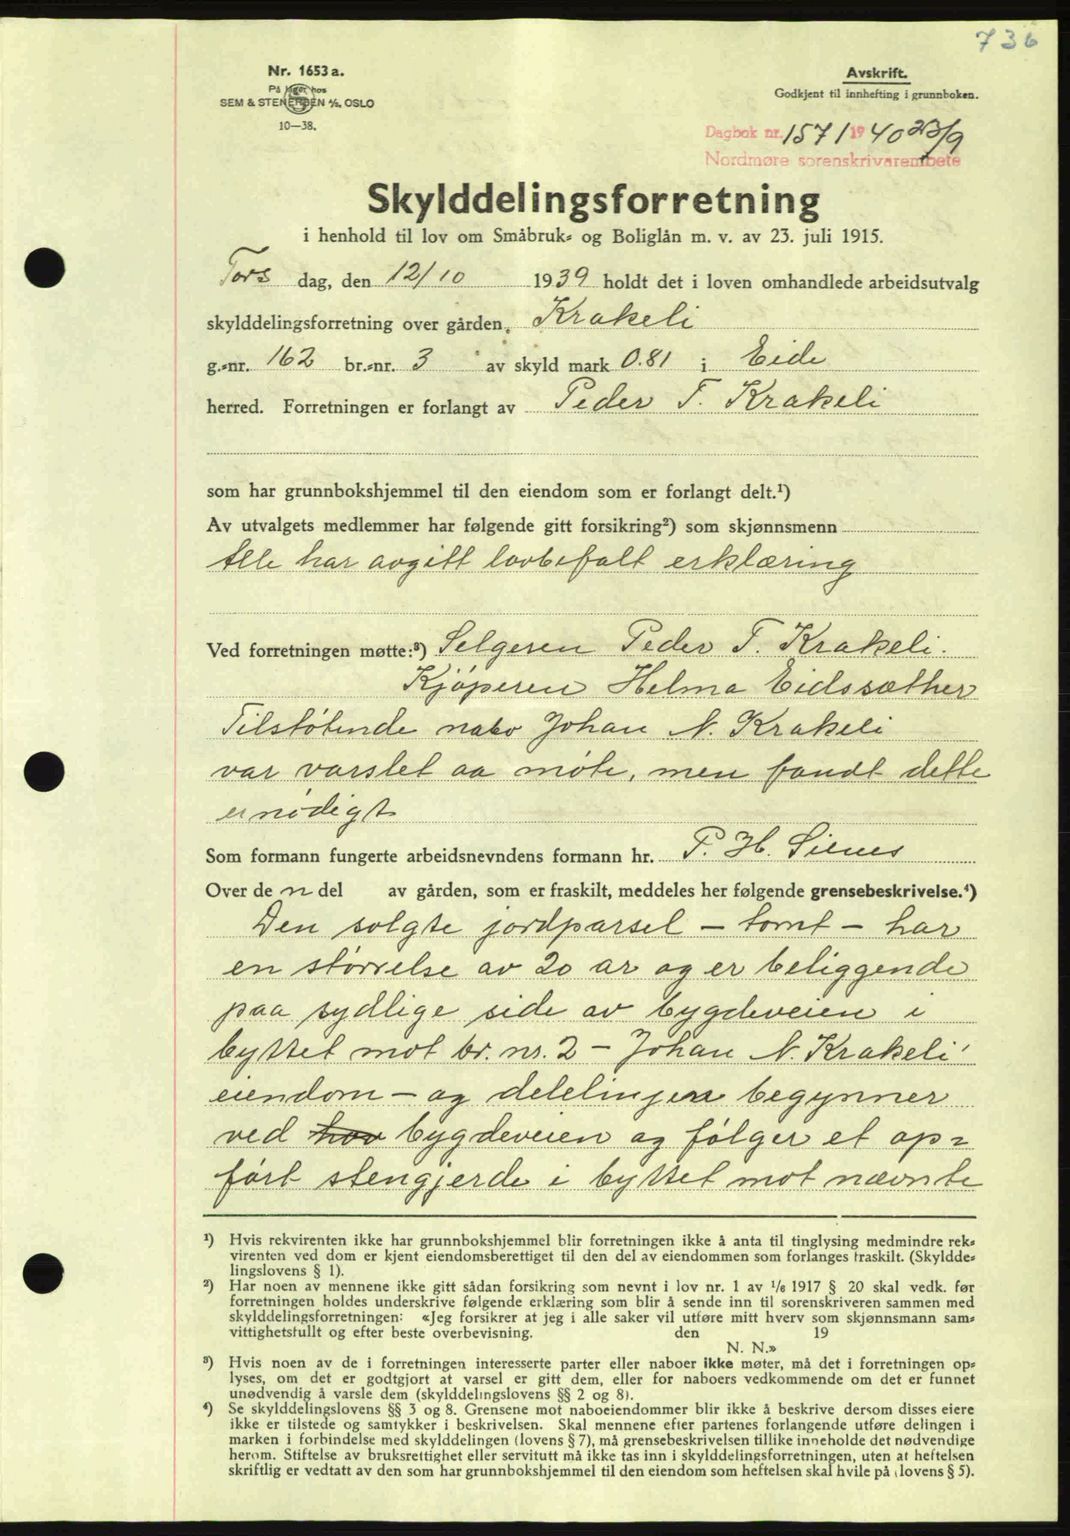 736
Nr. 1653 a.
På lager hos
SEM & STENERSEN A/S, OSLO
10—38.
Avskrift.
Godkjent til innhefting i grunnboken.
Dagbok nr. 1571 1940 23/9
Nordmøre sorenskrivarembete
Skylddelingsforretning
i henhold til lov om Småbruk- og Boliglån m. v. av 23. juli 1915.
Tors dag, den 12/10 1939 holdt det i loven omhandlede arbeidsutvalg
skylddelingsforretning over gården Krakeli
g.-nr. 162 br.-nr. 3 av skyld mark 0.81 i Eide
herred. Forretningen er forlangt av Peder T. Krakeli
som har grunnbokshjemmel til den eiendom som er forlangt delt.¹)
Av utvalgets medlemmer har følgende gitt forsikring²) som skjønnsmenn
Alle har avgitt lovbefalt erklæring
Ved forretningen møtte:³) Selgeren Peder T. Krakeli.
Kjøperen Helma Eidssæther
Tilstøtende nabo Johan N. Krakeli
var varslet aa møte, men fandt dette
unødigt
Som formann fungerte arbeidsnevndens formann hr. P. H. Silnes
Over de n del av gården, som er fraskilt, meddeles her følgende grensebeskrivelse.⁴)
Den solgte jordparsel — tomt — har
en størrelse av 20 ar og er beliggende
paa sydlige side av bygdeveien i
byttet mot br. nr. 2 — Johan N. Krakeli'
eiendom — og delelinjen begynner
ved hov bygdeveien og følger et op=
ført stengjerde i byttet mot nævnte
¹) Hvis rekvirenten ikke har grunnbokshjemmel blir forretningen ikke å anta til tinglysing medmindre rek-
virenten ved dom er kjent eiendomsberettiget til den del av eiendommen som forlanges fraskilt. (Skyldde-
lingslovens § 1).
²) Har noen av mennene ikke gitt sådan forsikring som nevnt i lov nr. 1 av 1/6 1917 § 20 skal vedk. før
forretningen holdes underskrive følgende erklæring som blir å sende inn til sorenskriveren sammen med
skylddelingsforretningen: «Jeg forsikrer at jeg i alle saker vil utføre mitt hverv som skjønnsmann sam-
vittighetsfullt og efter beste overbevisning. den 19
N. N.»
³) Hvis noen av de i forretningen interesserte parter eller naboer ikke møter, må det i forretningen op-
lyses, om det er godtgjort at varsel er gitt dem, eller for naboers vedkommende om det er funnet
unødvendig å varsle dem (skylddelingslovens §§ 2 og 8).
⁴) Se skylddelingslovens §§ 3 og 8. Grensene mot naboeiendommer blir ikke å beskrive dersom disses eiere
ikke er tilstede og samtykker i beskrivelsen. Skal mennene efter partenes forlangende utføre delingen i
marken i forbindelse med skylddelingen (lovens § 7), må grensebeskrivelsen tillike inneholde det nødvendige
herom. Stiftelse av bruksrettighet eller servitutt må ikke tas inn i skylddelingsforretningen, uten at heftelsen
skriftlig er vedtatt av den som har grunnbokshjemmel til den eiendom som heftelsen skal hvile på (lovens § 5).